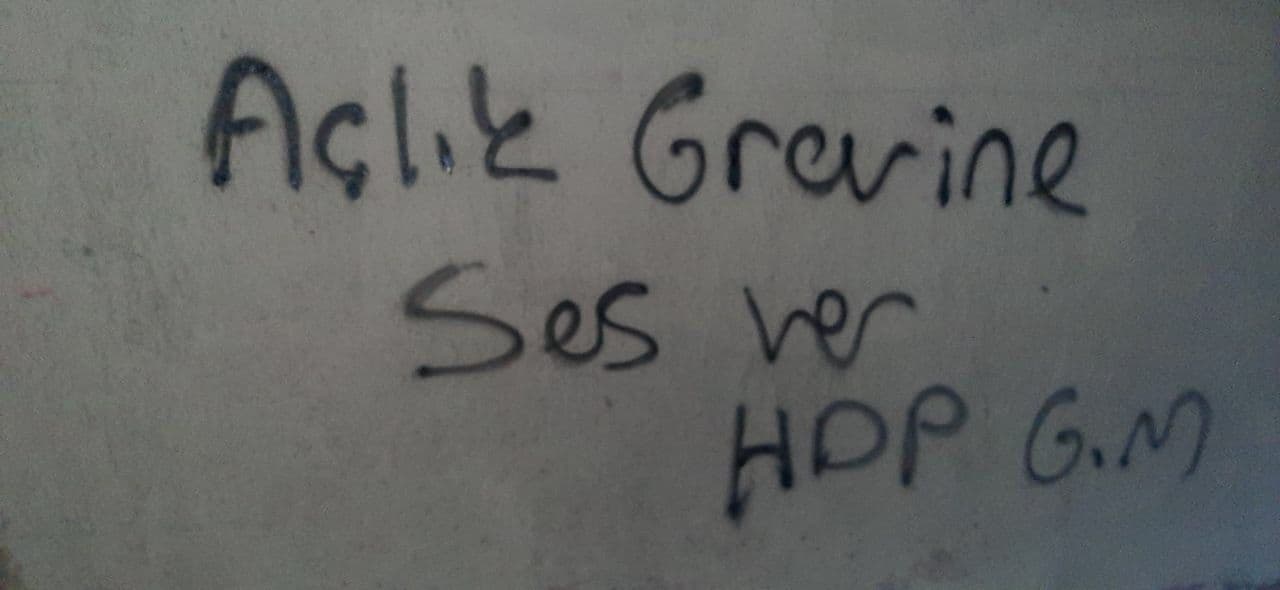 Açlık Grevine
Ses ver
HDP G.M